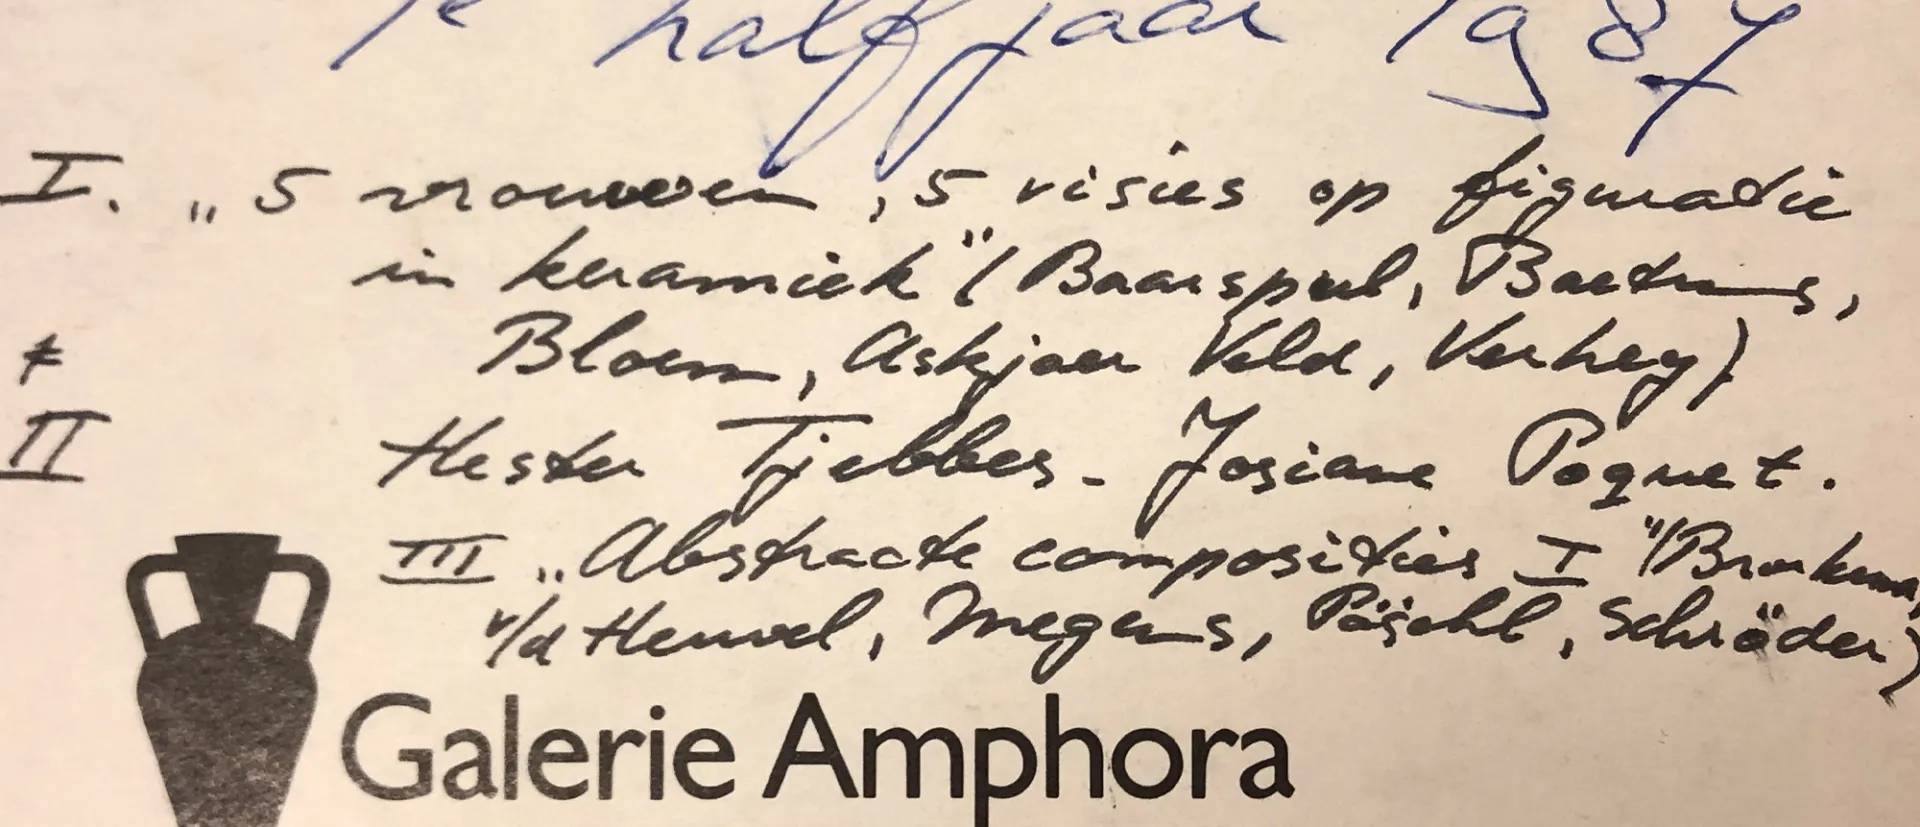 1e halfjaar 1987
I. „5 vrouwen, 5 visies op figuratie
in keramiek" (Baarspul, Baetens,
Bloem, Askjaer Veld, Verhey)
II Hester Tjebbes - Josiane Poquet.
III „Abstracte composities I" (
v/d Heuvel, Megens, Pöschl, Schröder)
Galerie Amphora